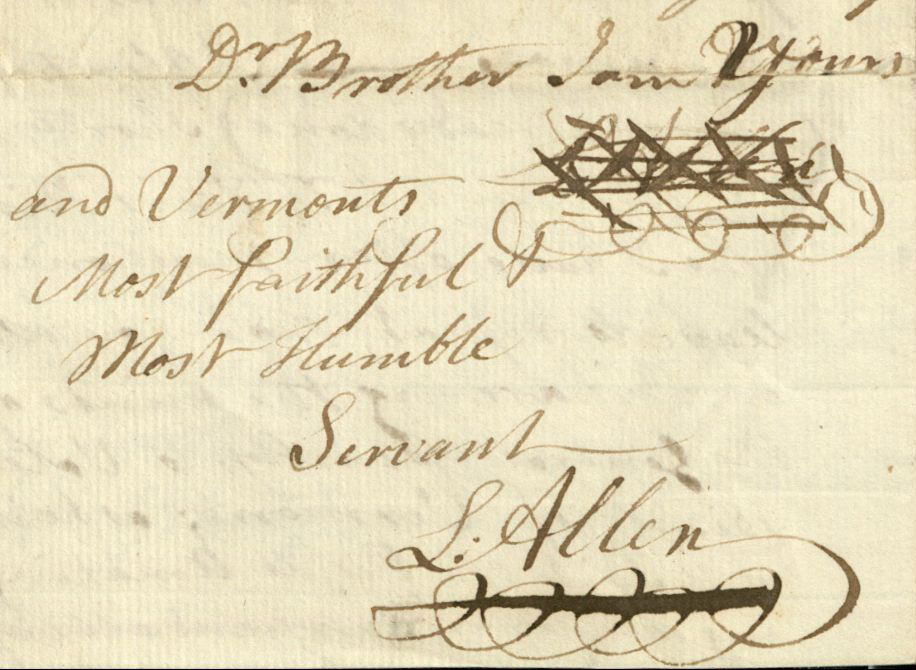 Dr Brother I am yours
and Vermonts
Most faithful &
Most Humble
Servant
L. Allen